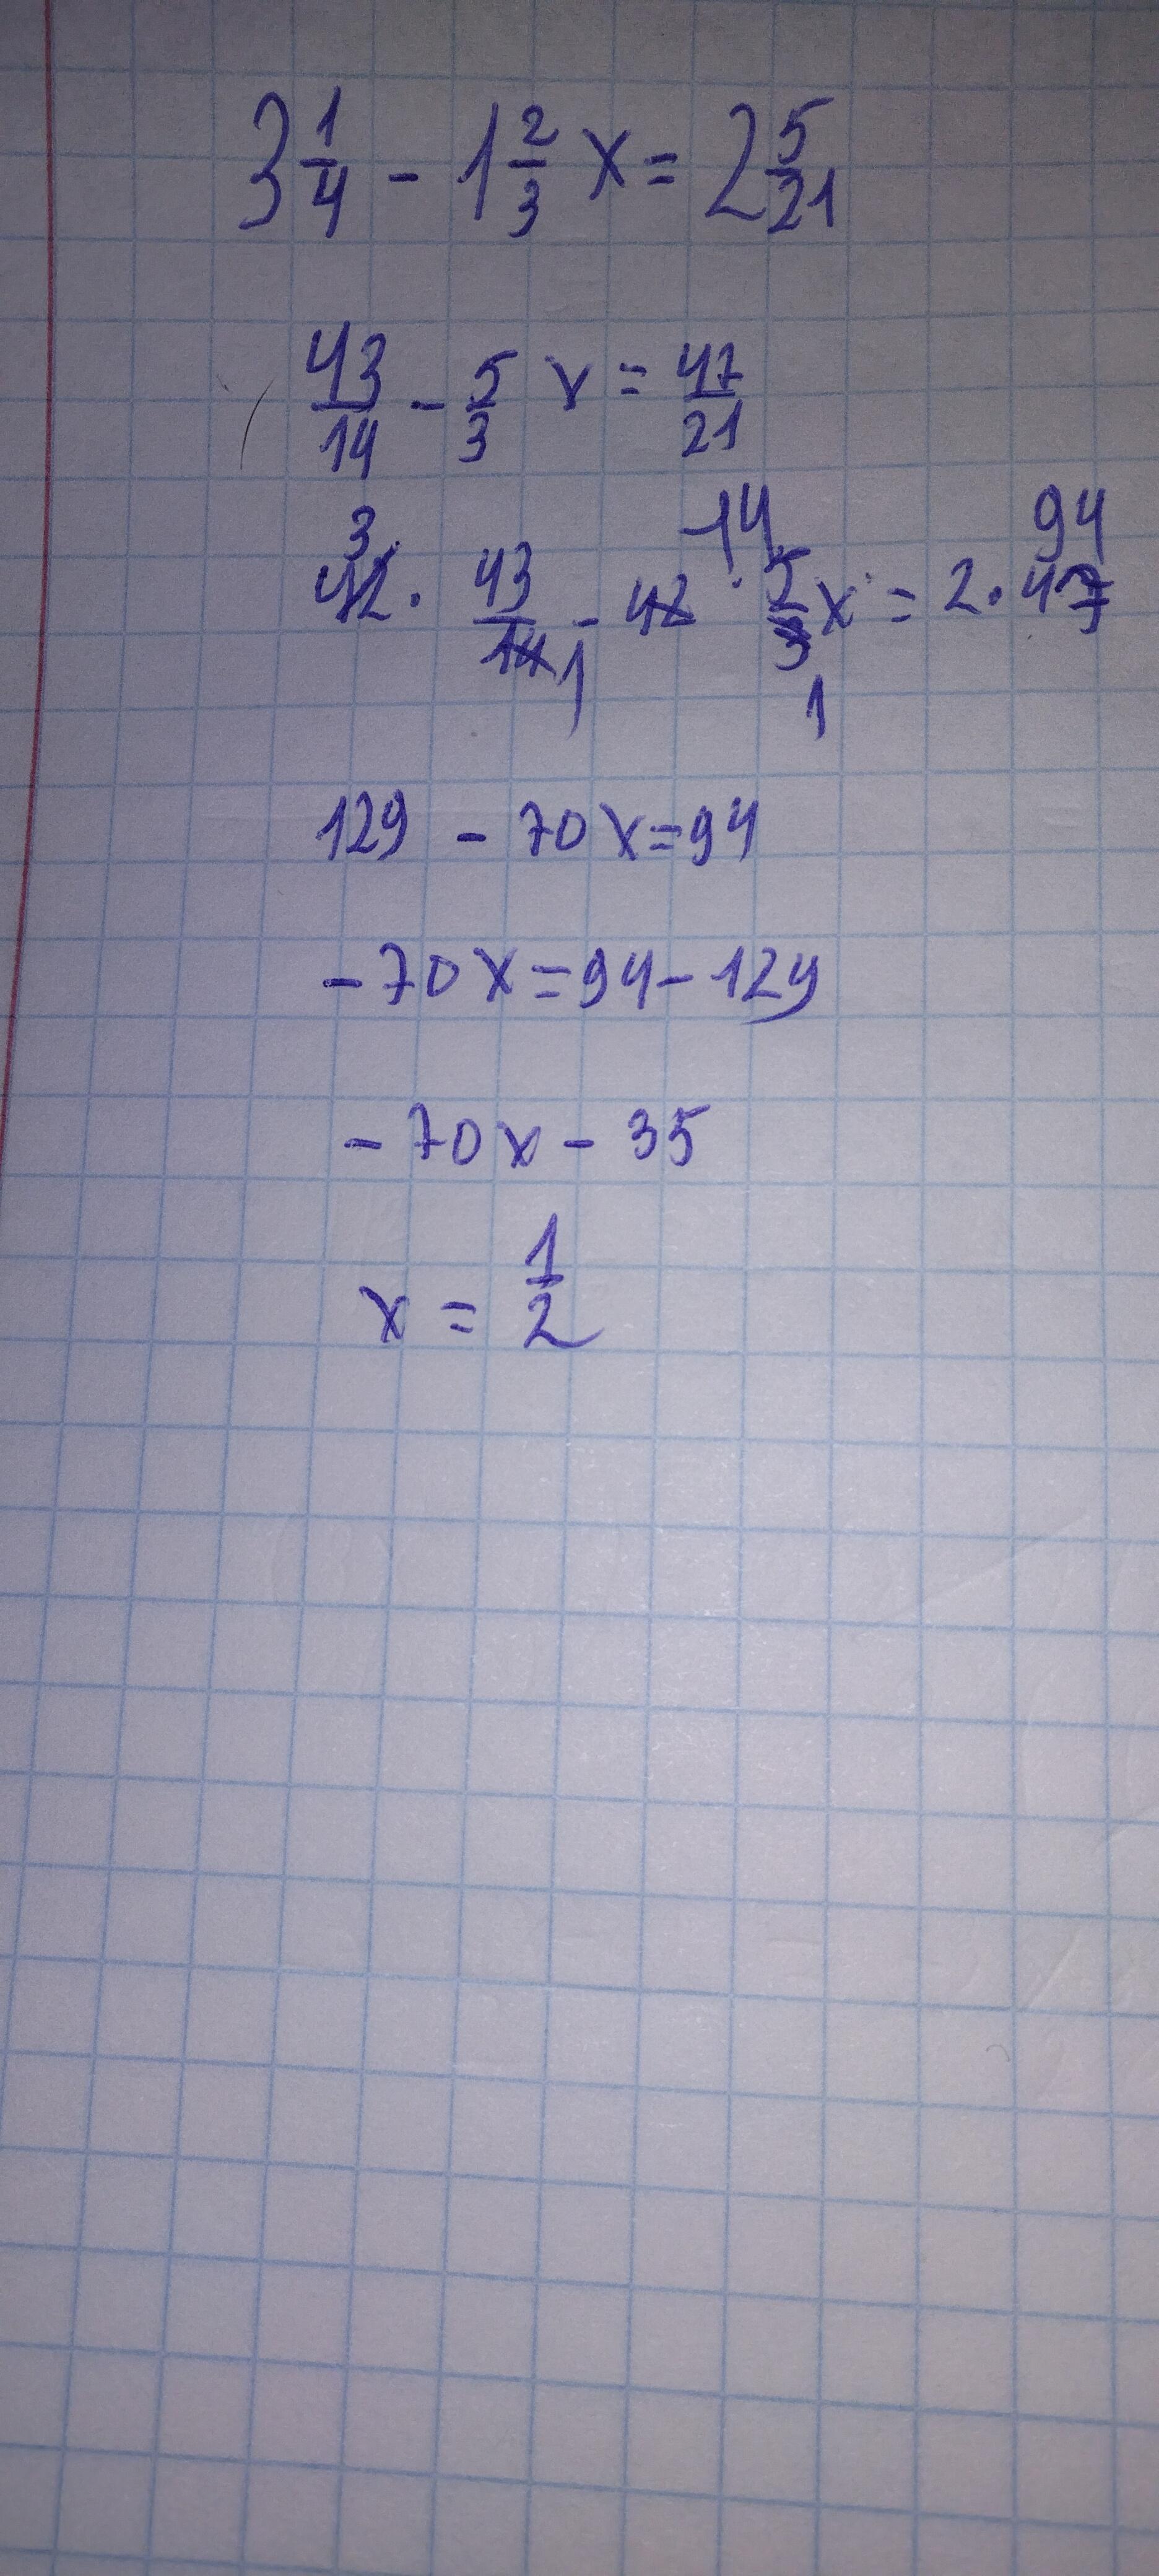 3 1/4 - 1 2/3 x = 2 5/21
43/14 - 5/3 x = 47/21
3 14 94
42 · 43/14 - 42 · 5/3 x = 2 · 47
1 1
129 - 70x = 94
- 70x = 94 - 129
- 70x - 35
x = 1/2